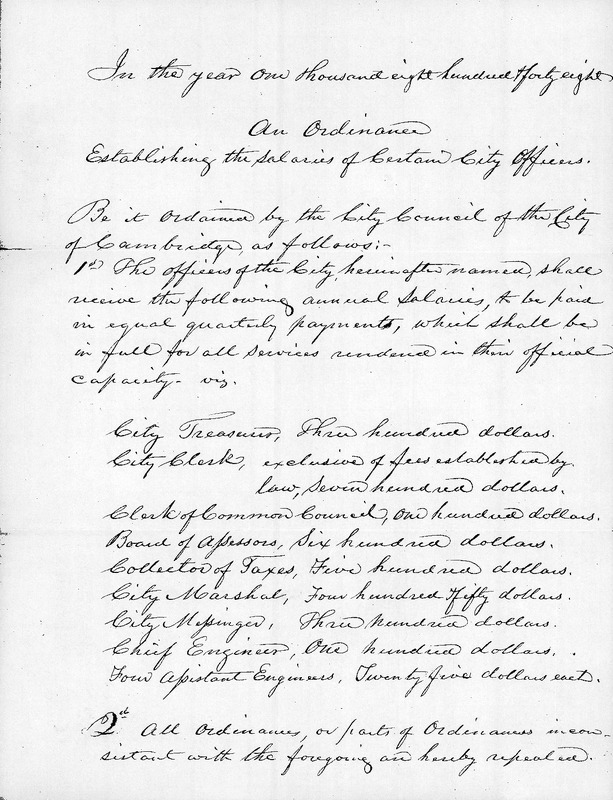 In the year One thousand eight hundred & forty eight
An Ordinance
Establishing the Salaries of Certain City Officers.
Be it Ordained by the City Council of the City
of Cambridge, as follows:-
1st The officers of the City, hereinafter named, shall
receive the following annual Salaries, to be paid
in equal quarterly payments, which shall be
in full for all services rendered in their official
capacity - viz.
City Treasurer, Three hundred dollars.
City Clerk, exclusive of fees established by
law, Seven hundred dollars.
Clerk of Common Council, One hundred dollars.
Board of Assessors, Six hundred dollars.
Collector of Taxes, Five hundred dollars.
City Marshal, Four hundred & fifty dollars.
City Messenger, Three hundred dollars.
Chief Engineer, One hundred dollars.
Four Assistant Engineers, Twenty five dollars each.
2nd All Ordinances, or parts of Ordinances incon-
sistant with the foregoing are hereby repealed.